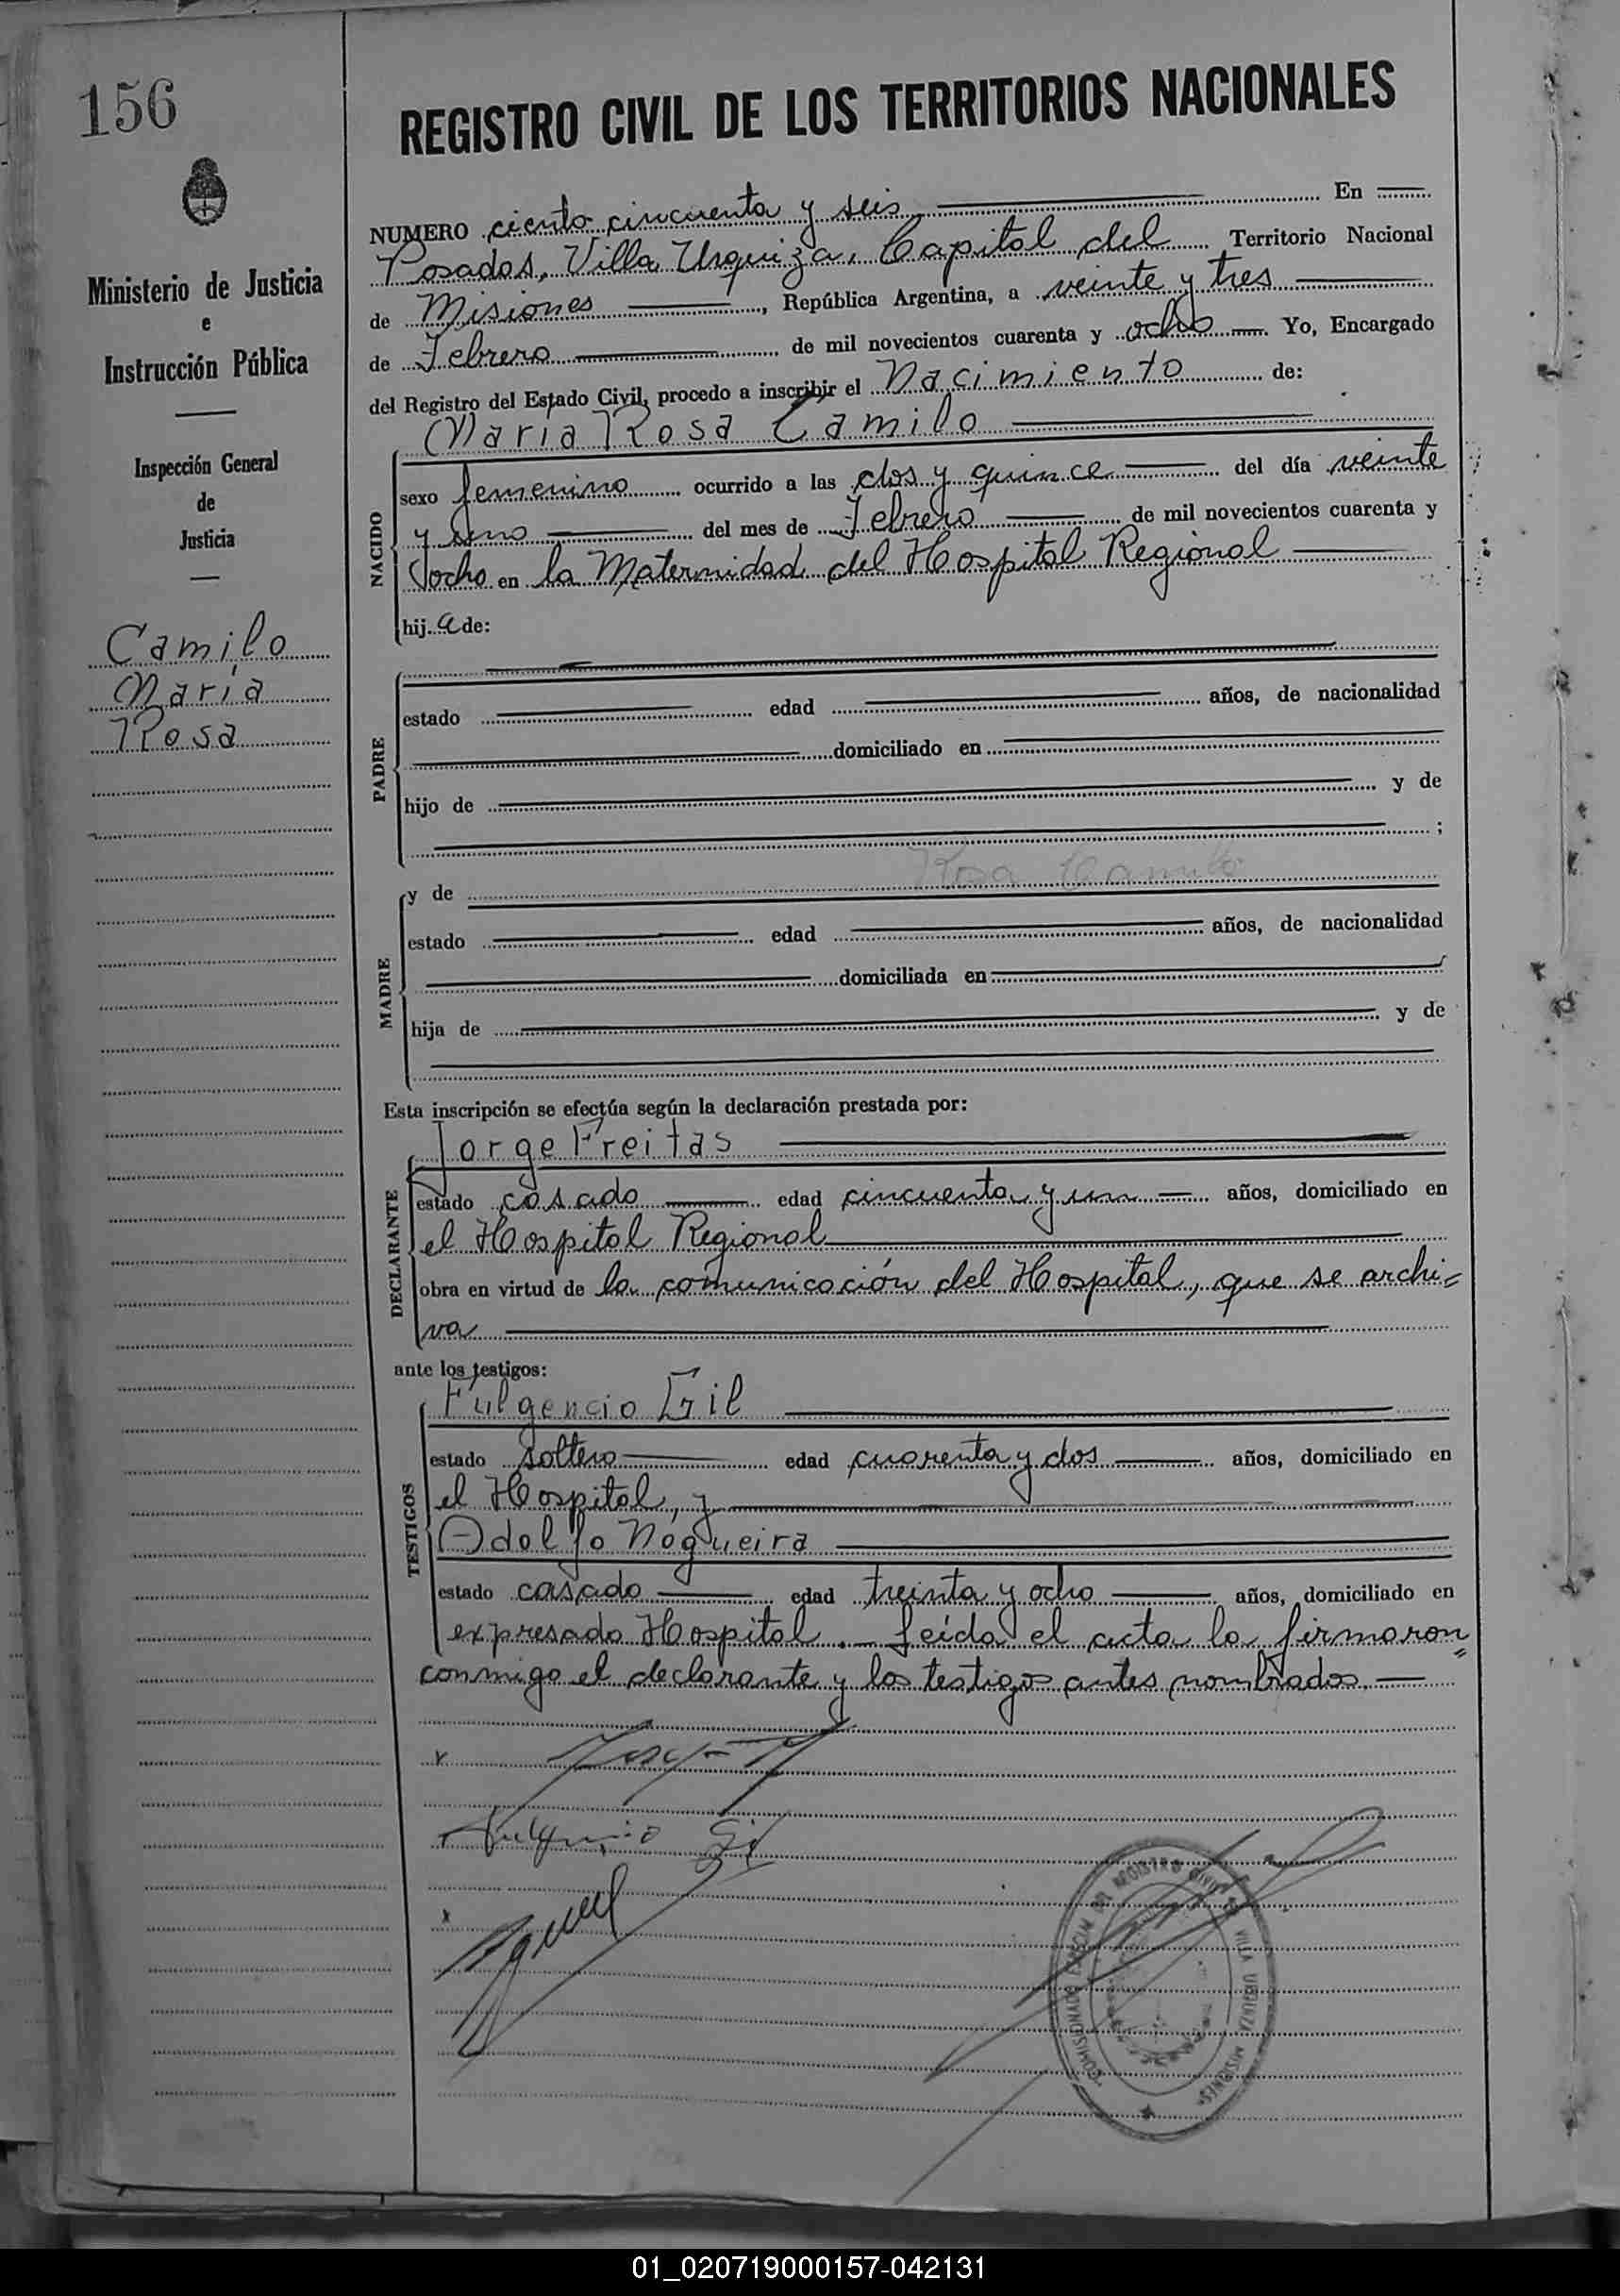 156
REGISTRO CIVIL DE LOS TERRITORIOS NACIONALES
Ministerio de Justicia
e
Instrucción Pública
Inspección General
de
Justicia
Camilo
María
Rosa
NUMERO ciento cincuenta y seis En
Posadas, Villa Urquiza, Capital del Territorio Nacional
de Misiones, República Argentina, a veinte y tres
de Febrero de mil novecientos cuarenta y ocho Yo, Encargado
del Registro del Estado Civil, procedo a inscribir el Nacimiento de:
María Rosa Camilo
NACIDO
sexo femenino ocurrido a las dos y quince del día veinte
y uno del mes de Febrero de mil novecientos cuarenta y
ocho en la Maternidad del Hospital Regional
hij a de:
PADRE
estado edad años, de nacionalidad
domiciliado en
hijo de y de
;
Rosa Camilo
MADRE
y de
estado edad años, de nacionalidad
domiciliada en
hija de y de
Esta inscripción se efectúa según la declaración prestada por:
Jorge Freitas
DECLARANTE
estado casado edad cincuenta y un años, domiciliado en
el Hospital Regional
obra en virtud de la comunicación del Hospital, que se archi=
va
ante los testigos:
Fulgencio Gil
TESTIGOS
estado soltero edad cuarenta y dos años, domiciliado en
el Hospital, y
Adolfo Nogueira
estado casado edad treinta y ocho años, domiciliado en
expresado Hospital. — Leída el acta la firmaron
conmigo el declarante y los testigos antes nombrados. —
Fulgencio Gil
COMISIONADO ESPECIAL DEL REGISTRO CIVIL VILLA URQUIZA MISIONES
01_020719000157-042131